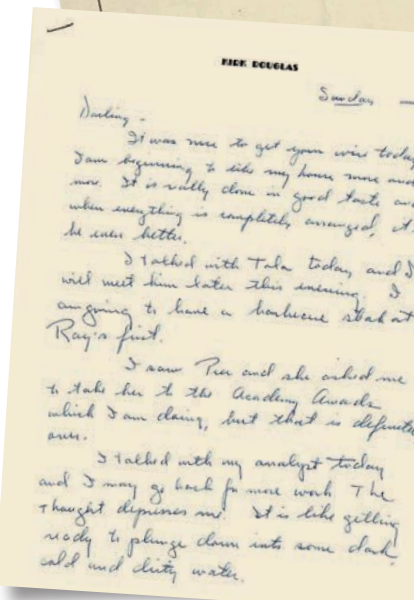 KIRK DOUGLAS
Sunday
Darling -
It was nice to get your wire today
I am beginning to like my house more and
more. It is really done in good taste and
when everything is completely arranged, it
be even better.
I talked with Tola today, and I
will meet him later this evening. I
am going to have a barbecue steak at
Ray's first.
I saw Pier and she asked me
to take her to the Academy Awards
which I am doing, but that is definitely
over.
I talked with my analyst today
and I may go back for more work The
thought depresses me. It is like getting
ready to plunge down into some dark
cold and dirty water.